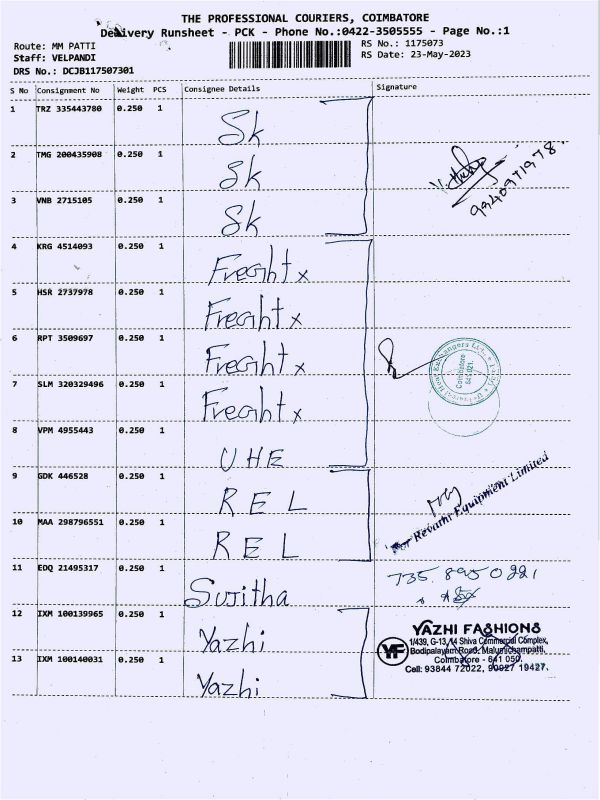 THE PROFESSIONAL COURIERS, COIMBATORE
Delivery Runsheet - PCK - Phone No.:0422-3505555 - Page No.:1
Route: MM PATTI RS No.: 1175073
Staff: VELPANDI RS Date: 23-May-2023
DRS No.: DCJB117507301
S No Consignment No Weight PCS Consignee Details Signature
1 TRZ 335443780 0.250 1 Sk
2 TMG 200435908 0.250 1 Sk
9940971978
3 VNB 2715105 0.250 1 Sk
4 KRG 4514093 0.250 1 Freaht x
5 HSR 2737978 0.250 1 Freaht x
6 RPT 3509697 0.250 1 Freaht x
Coimbatore
641 021.
7 SLM 320329496 0.250 1 Freaht x
8 VPM 4955443 0.250 1 UHE
9 GDK 446528 0.250 1 REL
For Revathi Equipment Limited
10 MAA 298796551 0.250 1 REL
11 EDQ 21495317 0.250 1 Sujitha
735 8950221
12 IXM 100139965 0.250 1 Yazhi
YAZHI FASHIONS
YF
1/439, G-13, 14 Shiva Commercial Complex,
Bodipalayam Road, Malumichampatti,
Coimbatore - 641 050.
Cell: 93844 72022, 90927 19427.
13 IXM 100140031 0.250 1 Yazhi